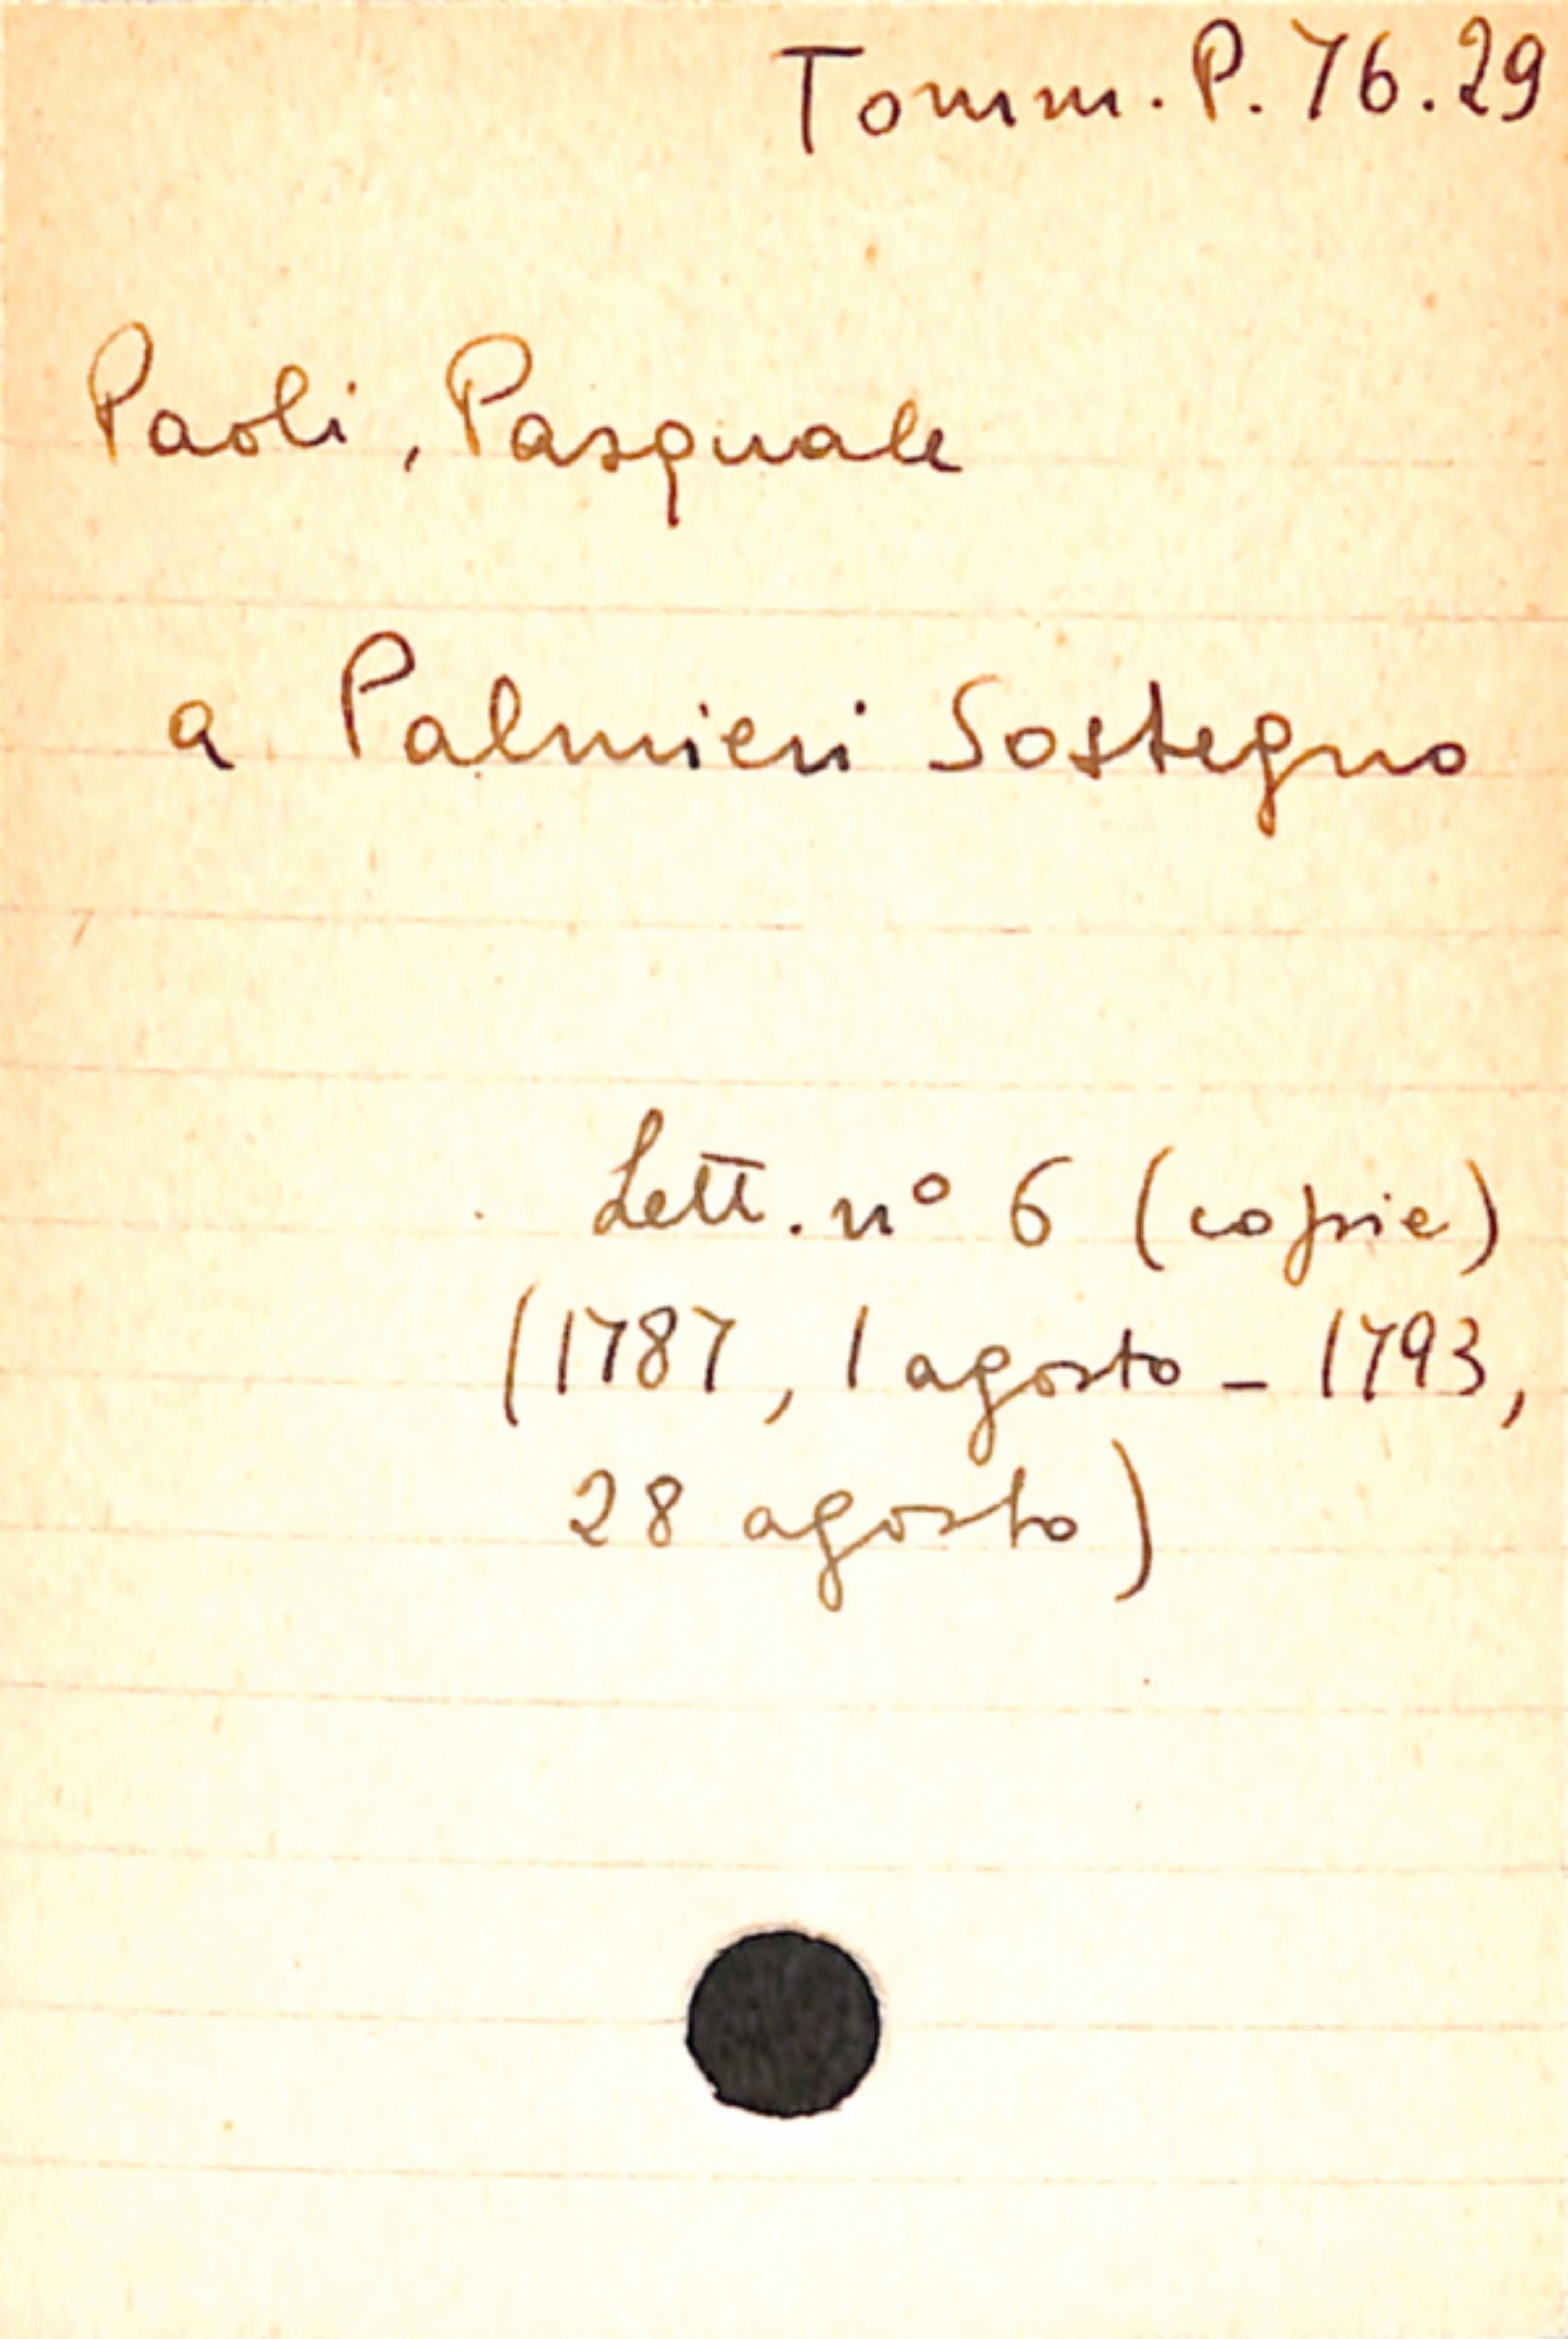 Tomm. P. 76. 29
Paoli, Pasquale
a Palmieri Sostegno
Lett. nº 6 (copie)
(1787, 1 agosto - 1793,
28 agosto)